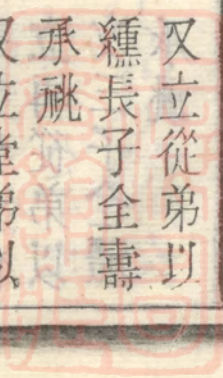 又立從弟以
纁長子全壽
承祧
又立堂弟以